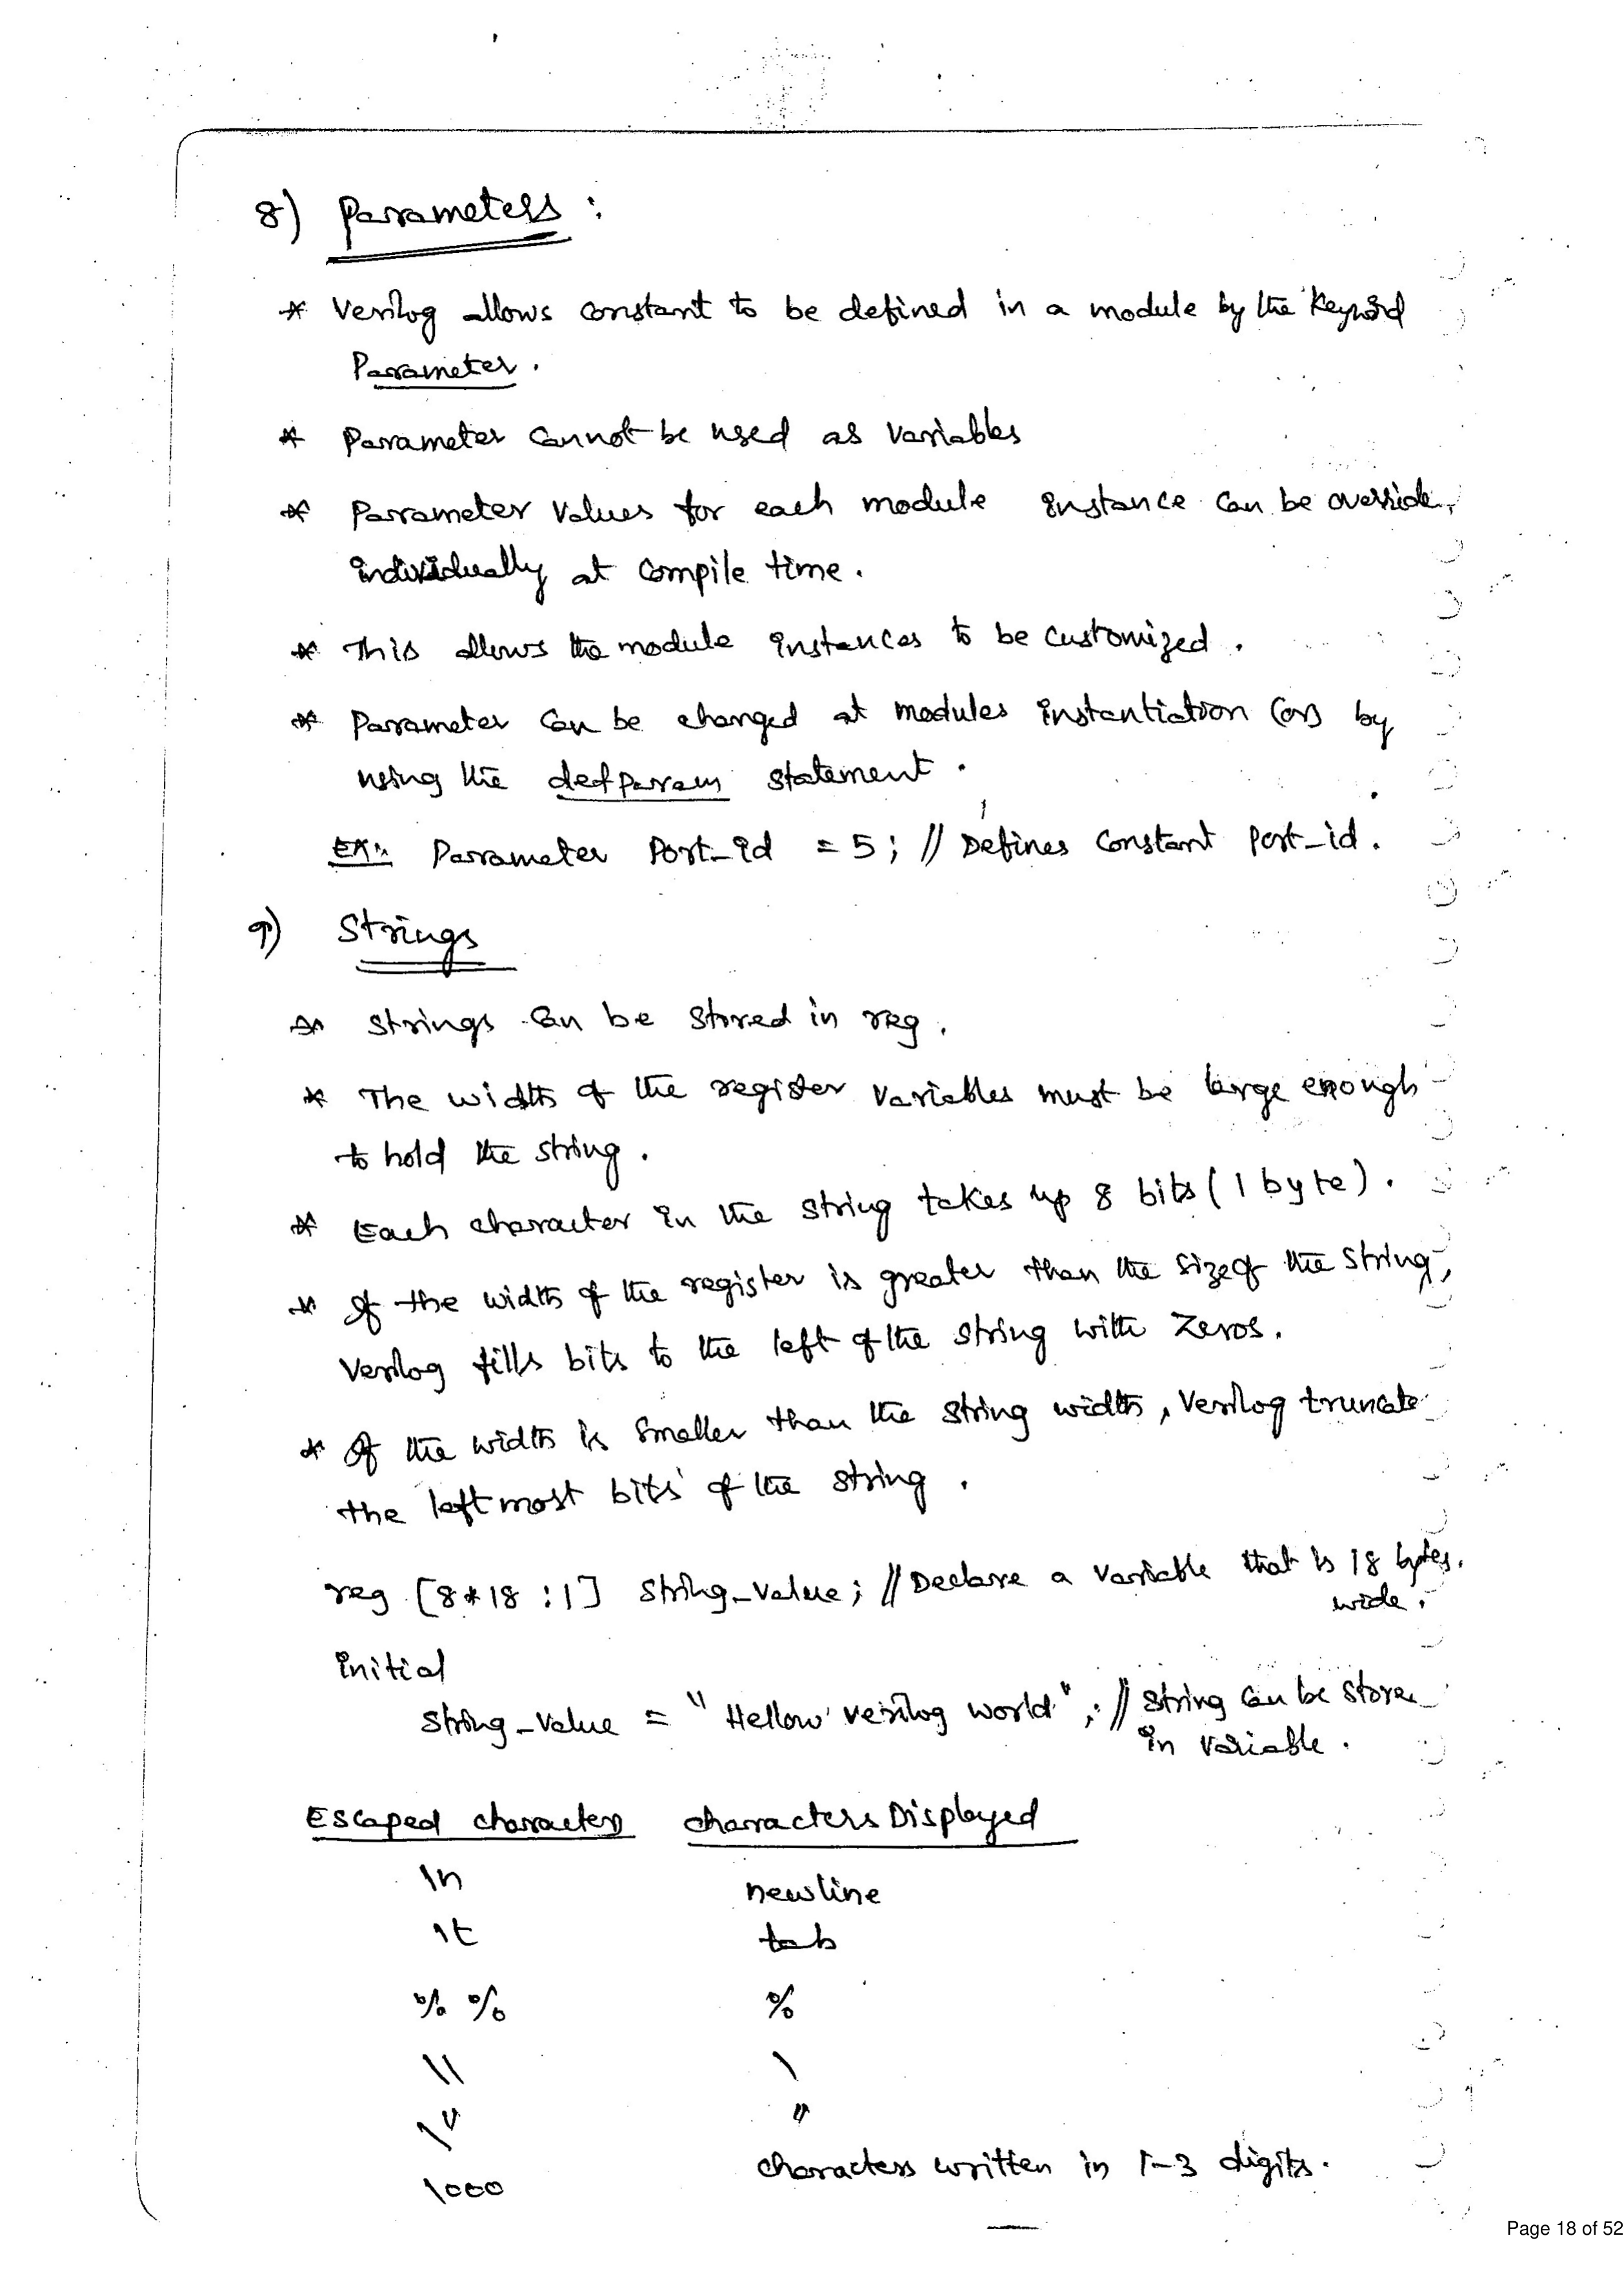 8) Parameters :
* Verilog allows constant to be defined in a module by the keyword
Parameter.
* Parameter cannot be used as variables
* Parameter values for each module instance can be override,
individually at compile time.
* This allows the module instances to be customized.
* Parameter can be changed at modules instantiation (or) by
using the defparam statement.
Ex:- Parameter Port_id = 5; // Defines Constant Port_id.
9) Strings
* Strings can be stored in reg.
* The width of the register variables must be large enough
to hold the string.
* Each character in the string takes up 8 bits (1 byte).
* If the width of the register is greater than the size of the string,
Verilog fills bits to the left of the string with zeros.
* If the width is smaller than the string width, Verilog truncate
the leftmost bits of the string.
reg [8*18 :1] string_value; // Declare a variable that is 18 bytes.
wide.
initial
string_value = "Hellow verilog world"; // string can be store
in variable.
Escaped characters characters Displayed
\n newline
\t tab
%% %
\\ \
\" "
\ooo characters written in 1-3 digits.
Page 18 of 52